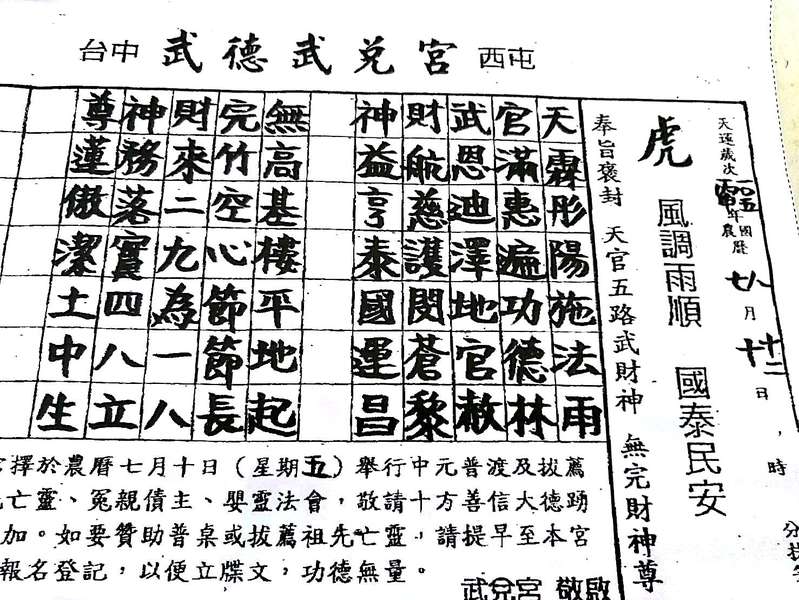 台中 武德武兌宮 西屯
天運歲次
一〇五年
國曆
農曆
八
七
月
十二
十
日，時
虎 風調雨順 國泰民安
奉旨褒封 天官五路武財神 無完財神尊
天霖彤陽施法雨
官滿惠遍功德林
武恩迪澤地官赦
財航慈護閔蒼黎
神益亨泰國運昌
無高基樓平地起
完竹空心節節長
財來二九為一八
神務落實四八立
尊蓮傲潔土中生
擇於農曆七月十日（星期五）舉行中元普渡及拔薦
亡靈、冤親債主、嬰靈法會，敬請十方善信大德踴
加。如要贊助普桌或拔薦祖先亡靈，請提早至本宮
報名登記，以便立牒文，功德無量。
武兌宮 敬啟